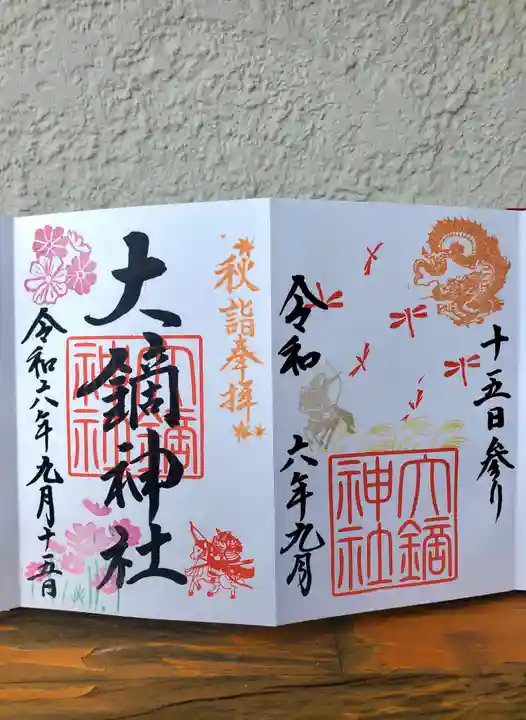 十五日参り
令和
六年九月
大鏑
神社
秋詣奉拝
大鏑神社
大鏑
神社
令和六年九月十五日